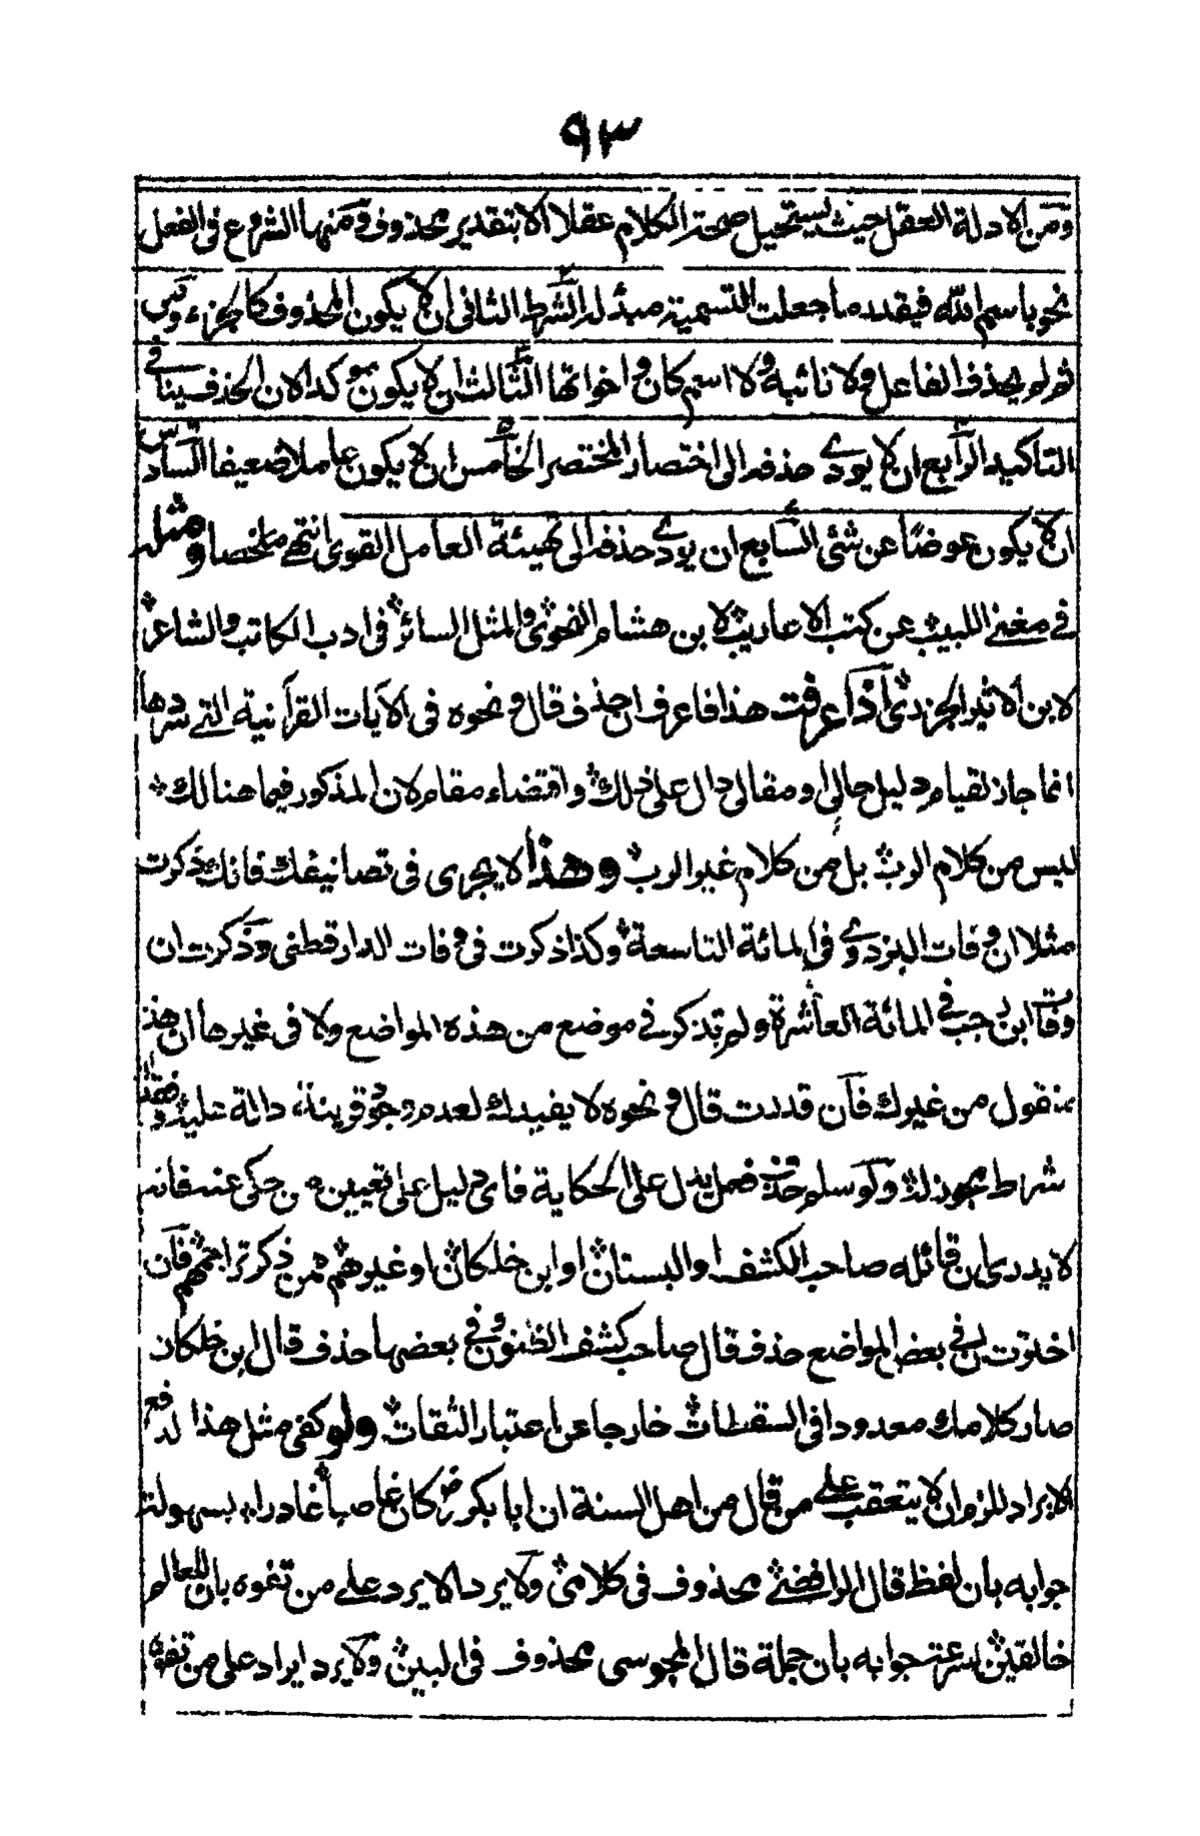 ٩٣
ومن الادلة العقل حيث يستحيل صحة الكلام عقلا الا بتقدير محذوف ومنها الشروع فى الفعل
نحو باسم الله فيقدر ما جعلت التسمية مبدأ له الشرط الثانى ان لا يكون المحذوف كالجزء ومن
ثم لم يحذف الفاعل ولا نائبه ولا اسم كان واخواتها الثالث ان لا يكون موكدا لان الحذف ينافى
التاكيد الرابع ان لا يودى حذفه الى اختصار المختصر الخامس ان لا يكون عاملا ضعيفا السادس
ان لا يكون عوضا عن شئى السابع ان يودى حذفه الى تهيئة العامل القوى انتهى ملخصا ومثله
فى مغنى اللبيب عن كتب الاعاريب لابن هشام النحوى والمثل السائر فى ادب الكاتب والشاعر
لابن الاثير الجزرى اذا عرفت هذا فاعرف ان حذف قال ونحوه فى الايات القرآنية التى سردها
انما جاز لقيام دليل حالى او مقالى دال على ذلك واقتضاء مقام لان المذكور فيما هنالك
ليس من كلام الرب بل من كلام غير الرب وهذا لا يجرى فى تصانيفك فانك ذكرت
مثلا ان وفات البزدوى فى المائة التاسعة وكذا ذكرت فى وفات الدارقطنى وذكرت ان
وفات ابن رجب فى المائة العاشرة ولم تذكر فى موضع من هذه المواضع ولا فى غيرها ان هذا
منقول من غيرك فان قدرت قال ونحوه لا يفيدك لعدم وجود قرينة دالة عليه وفقد
شراط مجوزله ولو سلم حذف فعل يدل على الحكاية فاى دليل على تعيين من حكى عنه فانه
لا يدرى ان قائله صاحب الكشف او البستان او ابن خلكان او غيرهم ممن ذكر تراجمهم فان
اخترت ان فى بعض المواضع حذف قال صاحب كشف الظنون وفى بعضها حذف قال ابن خلكان
صار كلامك معدودا فى السقطات خارجا عن اعتبار الثقات ولو كفى مثل هذا لدفع
الايراد للزم ان لا يتعقب على من قال من اهل السنة ان ابا بكر رض كان غاصبا غادرا بسهولة
جوابه بان لفظ قال الرافضى محذوف فى كلامى ولا يرد الايراد على من تفوه بان للعالم
خالقين لسرعة جوابه بان جملة قال المجوسى محذوف فى البين ولا يرد ايراد على من تفوه